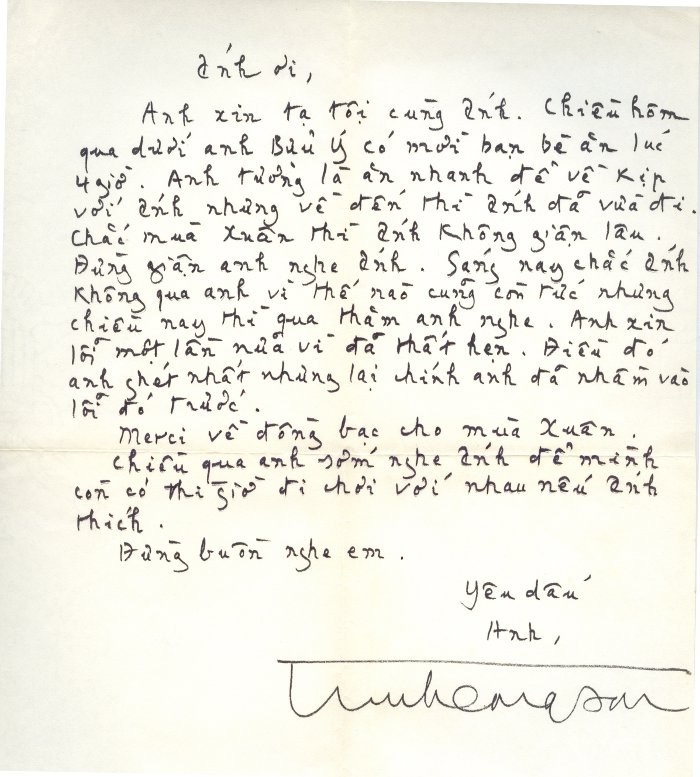 Ánh ơi,
Anh xin tạ tội cùng Ánh. Chiều hôm
qua dưới anh Bửu Ý có mời bạn bè ăn lúc
4 giờ. Anh tưởng là ăn nhanh để về kịp
với Ánh nhưng về đến thì Ánh đã vừa đi.
Chắc mùa Xuân thì Ánh không giận lâu.
Đừng giận anh nghe Ánh. Sáng nay chắc Ánh
không qua anh vì thế nào cũng còn tức nhưng
chiều nay thì qua thăm anh nghe. Anh xin
lỗi một lần nữa vì đã thất hẹn. Điều đó
anh ghét nhất nhưng lại chính anh đã nhầm vào
lỗi đó trước.
Merci về đồng bạc cho mùa Xuân.
Chiều qua anh sớm nghe Ánh để mình
còn có thì giờ đi chơi với nhau nếu Ánh
thích.
Đừng buồn nghe em.
Yêu dấu
Anh,
Trinhcongson